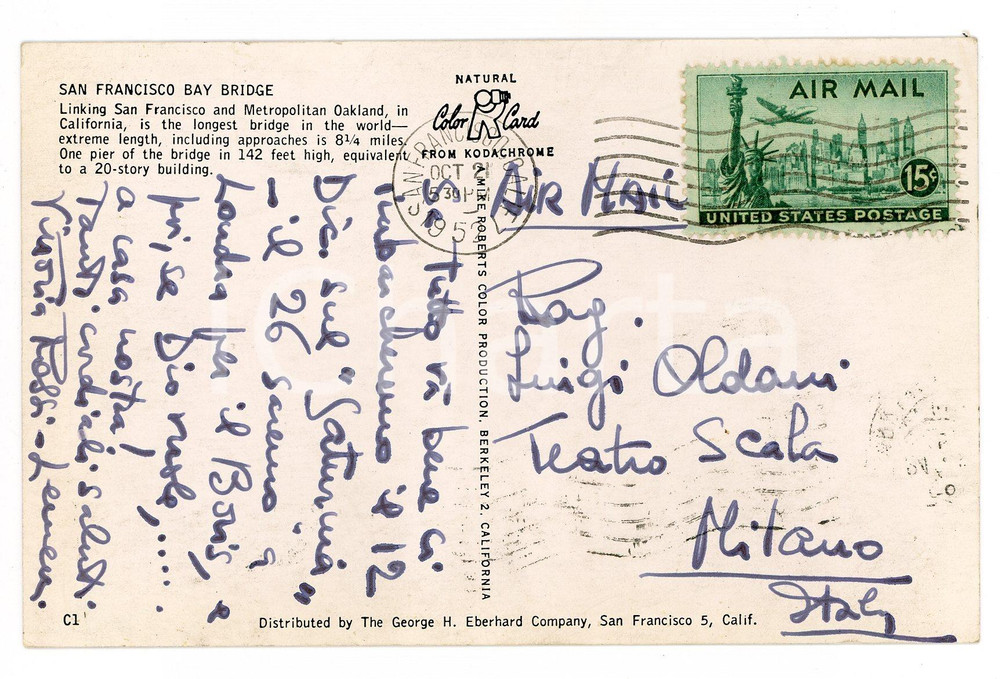 SAN FRANCISCO BAY BRIDGE
Linking San Francisco and Metropolitan Oakland, in
California, is the longest bridge in the world—
extreme length, including approaches is 8¼ miles.
One pier of the bridge in 142 feet high, equivalent
to a 20-story building.
NATURAL
Color Card
FROM KODACHROME
A MIKE ROBERTS COLOR PRODUCTION, BERKELEY 2, CALIFORNIA
AIR MAIL
15¢
UNITED STATES POSTAGE
SAN FRANCISCO, CALIF.
OCT 21
530 PM
195
AIR MAIL
Rag.
Luigi Oldani
Teatro Scala
Milano
Italy
Tutto va bene ci
imbarcheremo il 12
Dic. sul "Saturnia"
- il 26 saremo a
Londra per il Boris, e
poi, se Dio vuole,....
a casa nostra!
Tanti cordiali saluti.
Vittoria Rossi-Lemeni.
C1
Distributed by The George H. Eberhard Company, San Francisco 5, Calif.
iCharta